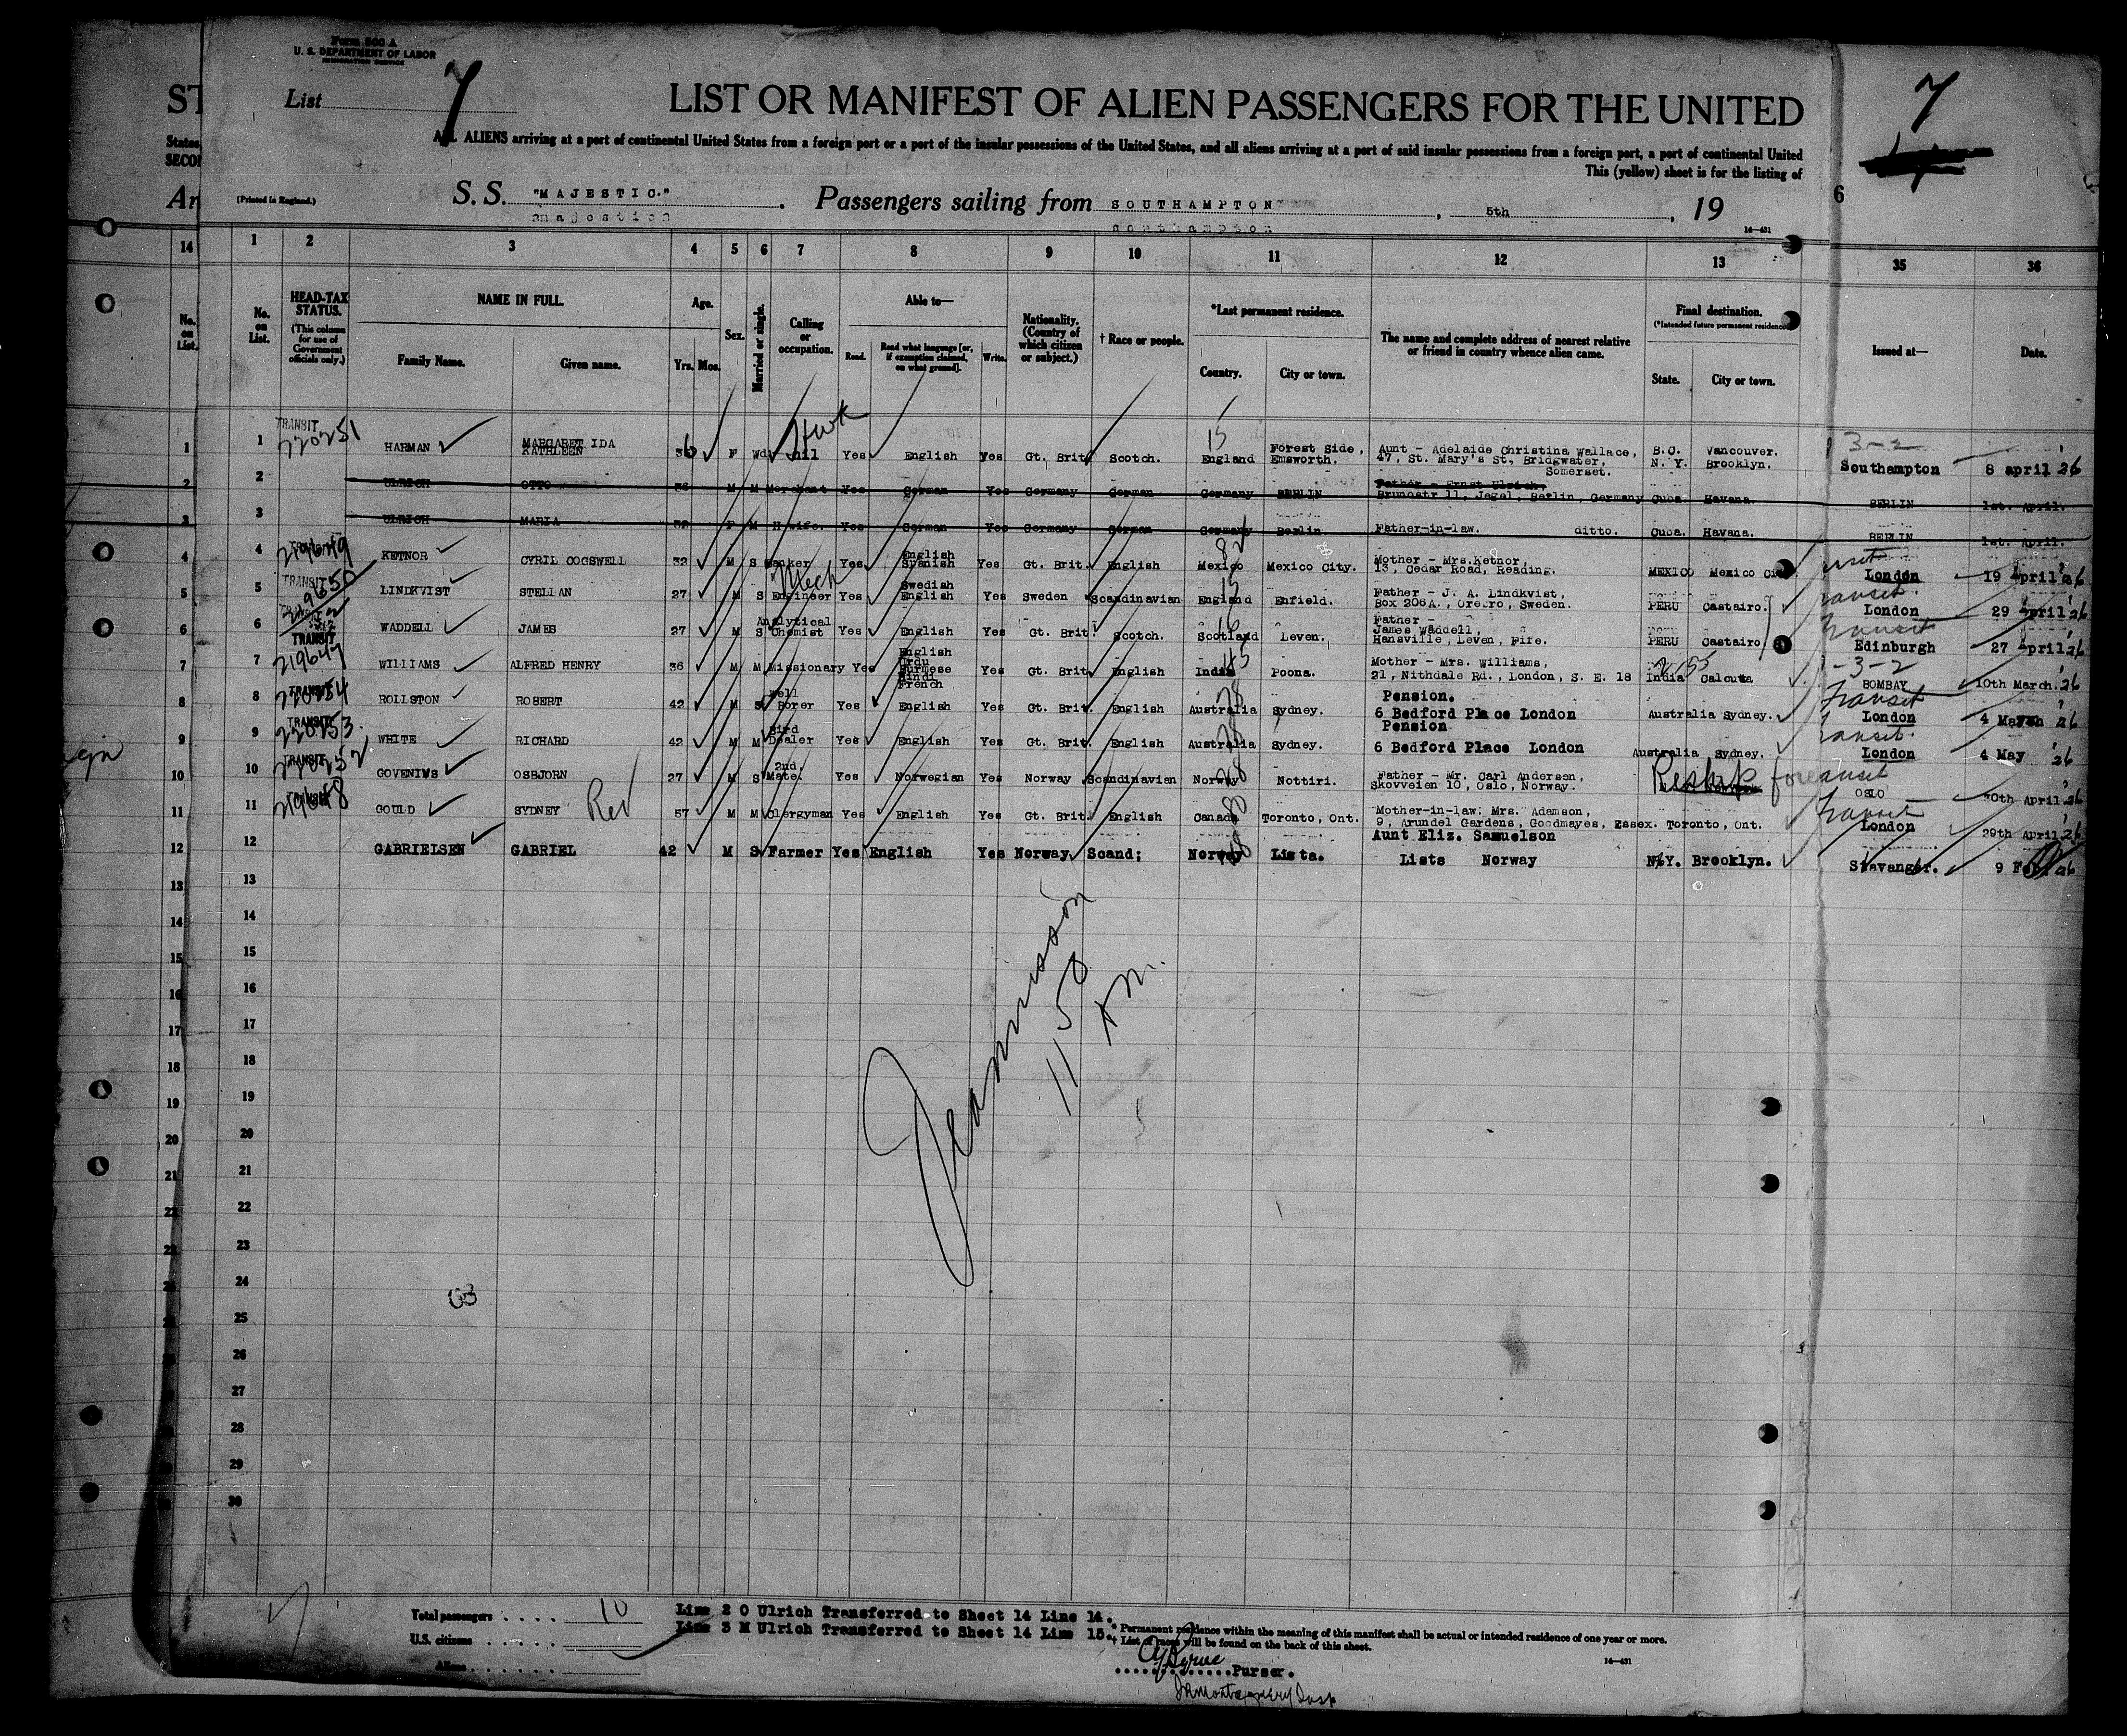 Form 500 A
U. S. DEPARTMENT OF LABOR
IMMIGRATION SERVICE
List 7
LIST OR MANIFEST OF ALIEN PASSENGERS FOR THE UNITED
7
ALL ALIENS arriving at a port of continental United States from a foreign port or a port of the insular possessions of the United States, and all aliens arriving at a port of said insular possessions from a foreign port, a port of continental United
This (yellow) sheet is for the listing of
(Printed in England.)
S.S. "MAJESTIC." Passengers sailing from SOUTHAMPTON, 5th, 19 6
16-431
14 1 2 3 4 5 6 7 8 9 10 11 12 13 35 36
No. on List. HEAD-TAX STATUS. (This column for use of Government officials only.) NAME IN FULL. Family Name. Given name. Age. Yrs. Mos. Sex. Married or single. Calling or occupation. Able to— Read. Read what language [or, if exemption claimed, on what ground]. Write. Nationality. (Country of which citizen or subject.) † Race or people. *Last permanent residence. Country. City or town. The name and complete address of nearest relative or friend in country whence alien came. Final destination. (*Intended future permanent residence) State. City or town. Issued at— Date.
1 TRANSIT 220251 HARMAN MARGARET IDA KATHLEEN 36 F Wd nil Hwk Yes English Yes Gt. Brit. Scotch. 15 England Forest Side, Emsworth. Aunt - Adelaide Christina Wallace, 47, St. Mary's St, Bridgwater, Somerset. B.C. Vancouver. N. Y. Brooklyn. 3-2 Southampton 8 april 26
2 ULRICH OTTO 36 M M Merchant Yes German Yes Germany German Germany BERLIN Father - Ernst Ulrich, Brunostr 11, Jegel, Berlin, Germany Cuba Havana. BERLIN 1st. April.
3 ULRICH MARIA 32 F M H wife. Yes German Yes Germany German Germany Berlin Father-in-law. ditto. Cuba. Havana. BERLIN 1st. April.
4 219649 KETNOR CYRIL COGSWELL 32 M S Banker Yes English Spanish Yes Gt. Brit. English 82 Mexico Mexico City. Mother - Mrs. Ketnor, 13, Cedar Road, Reading. MEXICO Mexico City London 19 April 26
5 TRANSIT 219650 LINDKVIST STELLAN 27 M S Mech Engineer Yes Swedish English Yes Sweden Scandinavian 15 England Enfield. Father - J. A. Lindkvist, Box 206A., Orebro, Sweden. PERU Castairo. transit. London 29 April 26
6 WADDELL JAMES 27 M S Analytical Chemist Yes English Yes Gt. Brit. Scotch. 16 Scotland Leven. Father - James Waddell, Hansville, Leven, Fife. PERU Castairo transit Edinburgh 27 April 26
7 TRANSIT 219647 WILLIAMS ALFRED HENRY 36 M M Missionary Yes English Urdu Burmese Hindi French Yes Gt. Brit. English India Poona. Mother - Mrs. Williams, 21, Nithdale Rd., London, S. E. 18 India Calcutta 1-3-2 BOMBAY 10th March. 26
8 TRANSIT 220254 ROLLSTON ROBERT 42 M S Well Borer Yes English Yes Gt. Brit. English 78 Australia Sydney. Pension. 6 Bedford Place London Australia Sydney. transit London 4 March 26
9 TRANSIT 220253 WHITE RICHARD 42 M M Bird Dealer Yes English Yes Gt. Brit. English 78 Australia Sydney. Pension 6 Bedford Place London Australia Sydney. transit. London 4 May 26
10 TRANSIT 220252 GOVENIUS OSBJORN 27 M S 2nd. Mate. Yes Norwegian Yes Norway Scandinavian Norway Nottiri. Father - Mr. Carl Anderson, Skovveien 10, Oslo, Norway. Reship foreign transit OSLO 30th April 26
11 219648 GOULD SYDNEY Rev 57 M M Clergyman Yes English Yes Gt. Brit. English 80 Canada Toronto, Ont. Mother-in-law. Mrs. Adamson, 9, Arundel Gardens, Goodmayes, Essex. Toronto, Ont. transit London 29th April 26
12 GABRIELSEN GABRIEL 42 M S Farmer Yes English Yes Norway Scand; Norway Lista. Aunt Eliz. Samuelson Lists Norway N.Y. Brooklyn. Stavanger. 9 Feb. 26
13
14
15
16
17
18
19
20
21
22
23
24
25
26
27
28
29
30
Jeannisson
11 50
AM.
Total passengers 10
U.S. citizens
Aliens
Line 2 O Ulrich Transferred to Sheet 14 Line 14.
Line 3 M Ulrich Transferred to Sheet 14 Line 15.
* Permanent residence within the meaning of this manifest shall be actual or intended residence of one year or more.
† List of races will be found on the back of this sheet.
16-431
Purser.